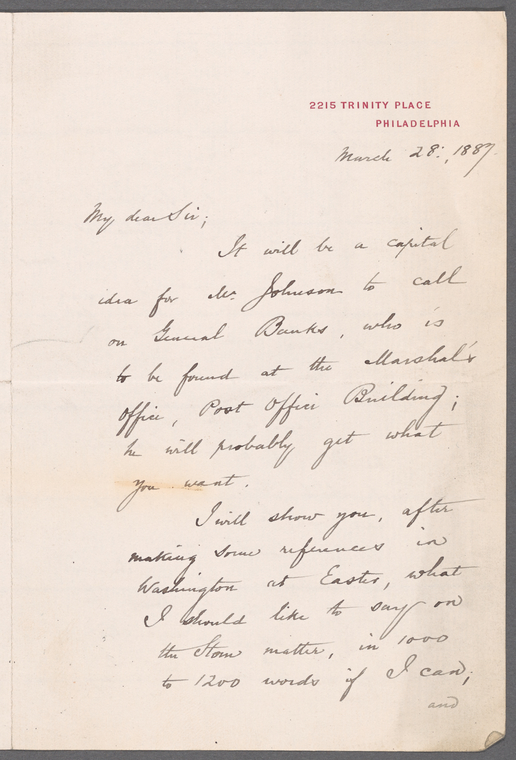 2215 TRINITY PLACE
PHILADELPHIA
March 28:, 1887.
My dear Sir;
It will be a capital
idea for Mr. Johnson to call
on General Banks, who is
to be found at the Marshal's
Office, Post Office Building;
he will probably get what
you want.
I will show you, after
making some references in
Washington at Easter, what
I should like to say on
the Stone matter, in 1000
to 1200 words if I can;
and